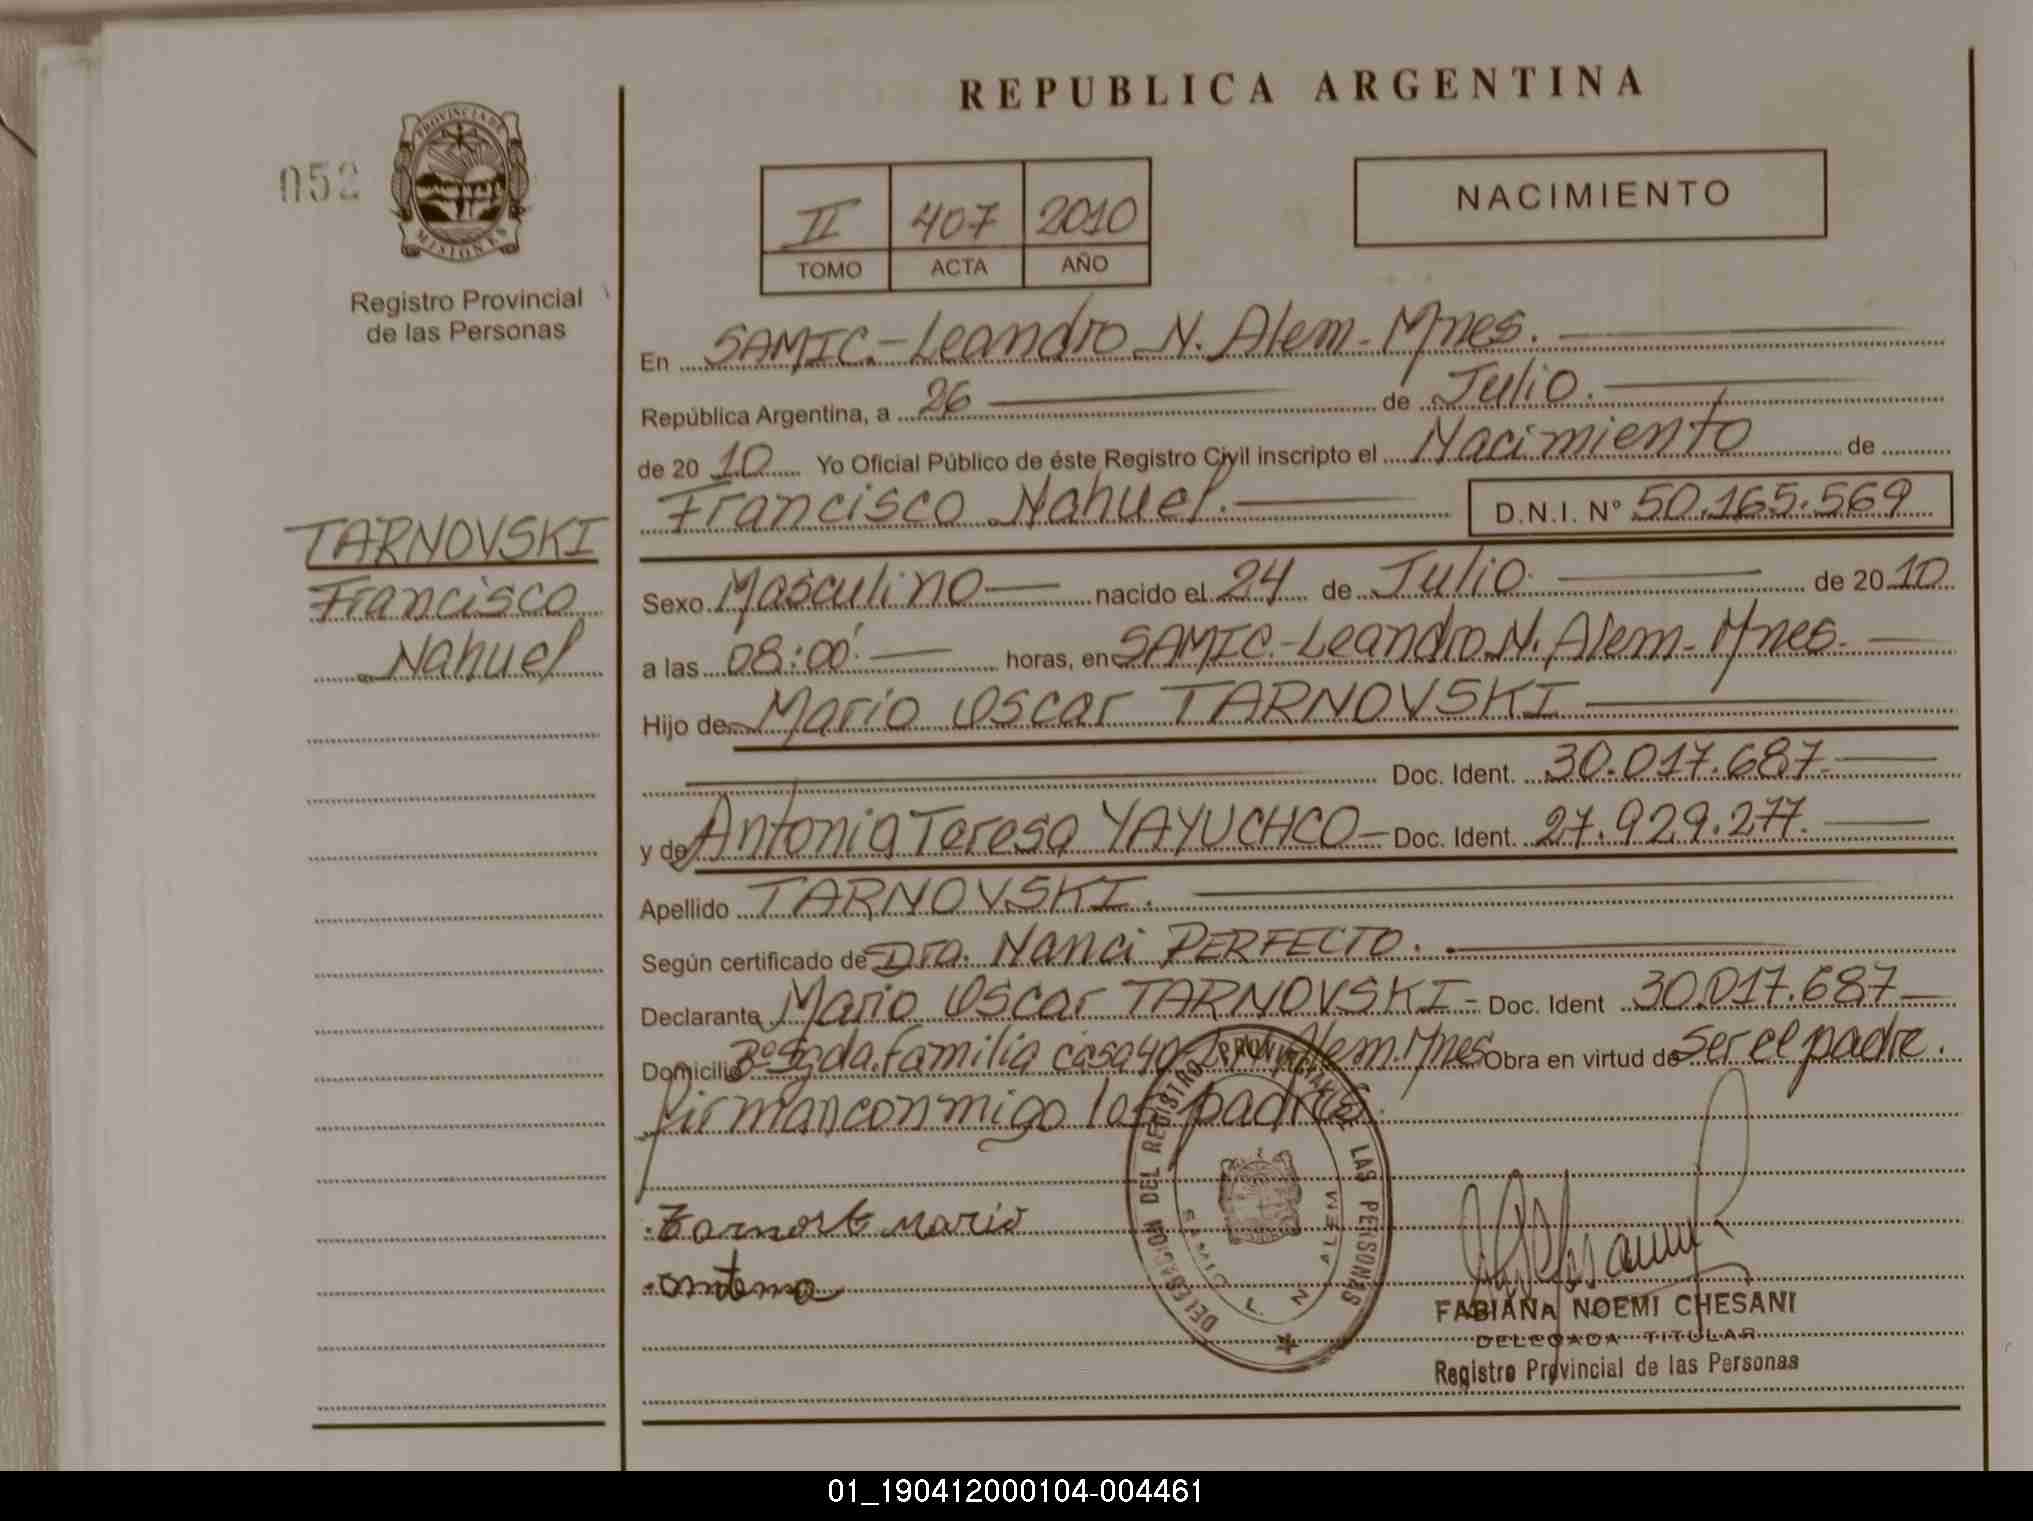 REPUBLICA ARGENTINA
052
PROVINCIA DE MISIONES
Registro Provincial
de las Personas
II 407 2010
TOMO ACTA AÑO
NACIMIENTO
En SAMIC.-Leandro N. Alem-Mnes.
República Argentina, a 26 de Julio.
de 20 10 Yo Oficial Público de éste Registro Civil inscripto el Nacimiento de
Francisco Nahuel. D.N.I. N° 50.165.569
TARNOVSKI
Francisco
Nahuel
Sexo Masculino nacido el 24 de Julio. de 20 10
a las 08:00' horas, en SAMIC.-Leandro N. Alem-Mnes.
Hijo de Mario Oscar TARNOVSKI
Doc. Ident. 30.017.687
y de Antonia Teresa YAYUCHCO Doc. Ident. 27.929.277.
Apellido TARNOVSKI.
Según certificado de Dra. Nanci PERFECTO.
Declarante Mario Oscar TARNOVSKI- Doc. Ident 30.017.687
Domicilio B° Sgda. Familia casa 40- Alem. Mnes Obra en virtud de Ser el padre.
firman conmigo los padres.
mario
DELEGACION DEL REGISTRO PROVINCIAL DE LAS PERSONAS
SAMIC L. N. ALEM
FABIANA NOEMI CHESANI
DELEGADA TITULAR
Registro Provincial de las Personas
01_190412000104-004461